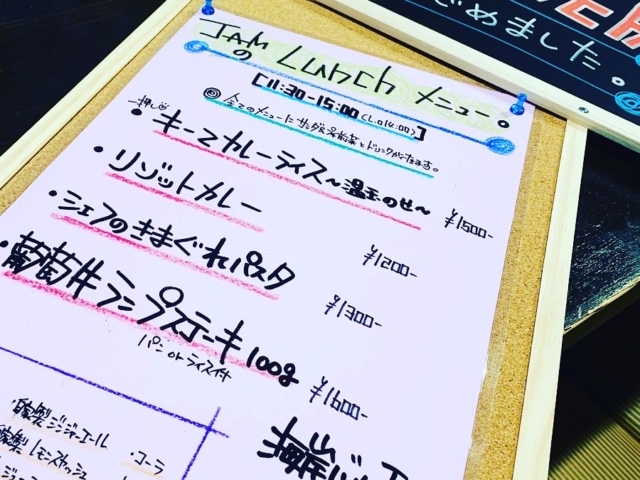 じめました。
JAM の Lunch メニュー。
[11:30-15:00 (L.o14:00)]
◎全てのメニューにサラダ&前菜とドリンクが付きます。
一押し♡
・キーマカレーライス〜温玉のせ〜 ¥1500-
・リゾットカレー ¥1200-
・シェフのきまぐれパスタ ¥1300-
・葡萄牛ランプステーキ100g ¥1600-
パン or ライス付
自家製ジンジャーエール
自家製レモンスカッシュ ・コーラ